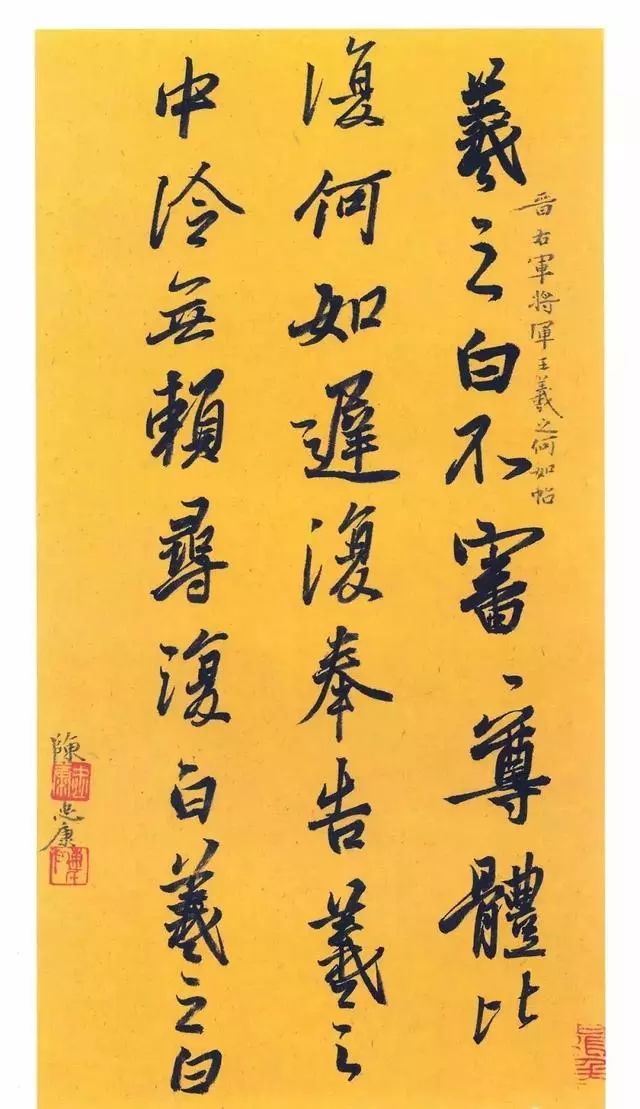 羲之白不審〻尊體比
復何如遲復奉告羲之
中冷無賴尋復白羲之白
晋右軍将軍王羲之何如帖
陳忠康